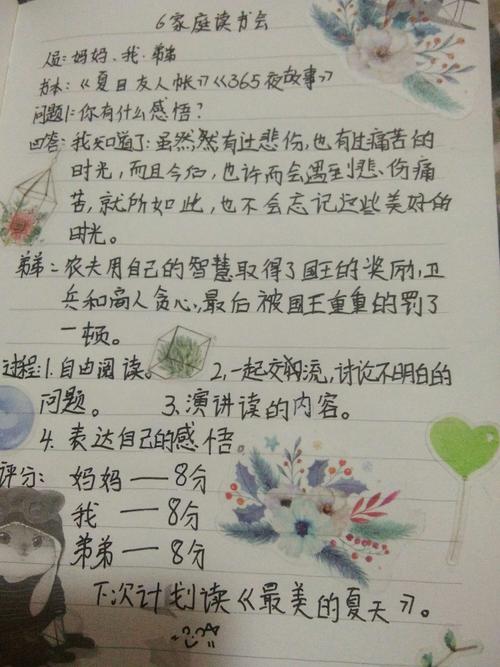 6家庭读书会
人员:妈妈、我、弟弟
书本:《夏目友人帐》《365夜故事》
问题1:你有什么感悟?
回答:我知道了:虽然然有过悲伤,也有过痛苦的
时光,而且今后,也许而会遇到悲伤痛
苦,就所如此,也不会忘记这些美好的
时光。
弟弟:农夫用自己的智慧取得了国王的奖励,卫
兵和商人贪心,最后被国王重重的罚了
一顿。
过程:1.自由阅读。 2,一起交流,讨论不明白的
问题。 3.演讲读的内容。
4.表达自己的感悟。
评分:妈妈—8分
我—8分
弟弟—8分
下次计划读《最美的夏天》。